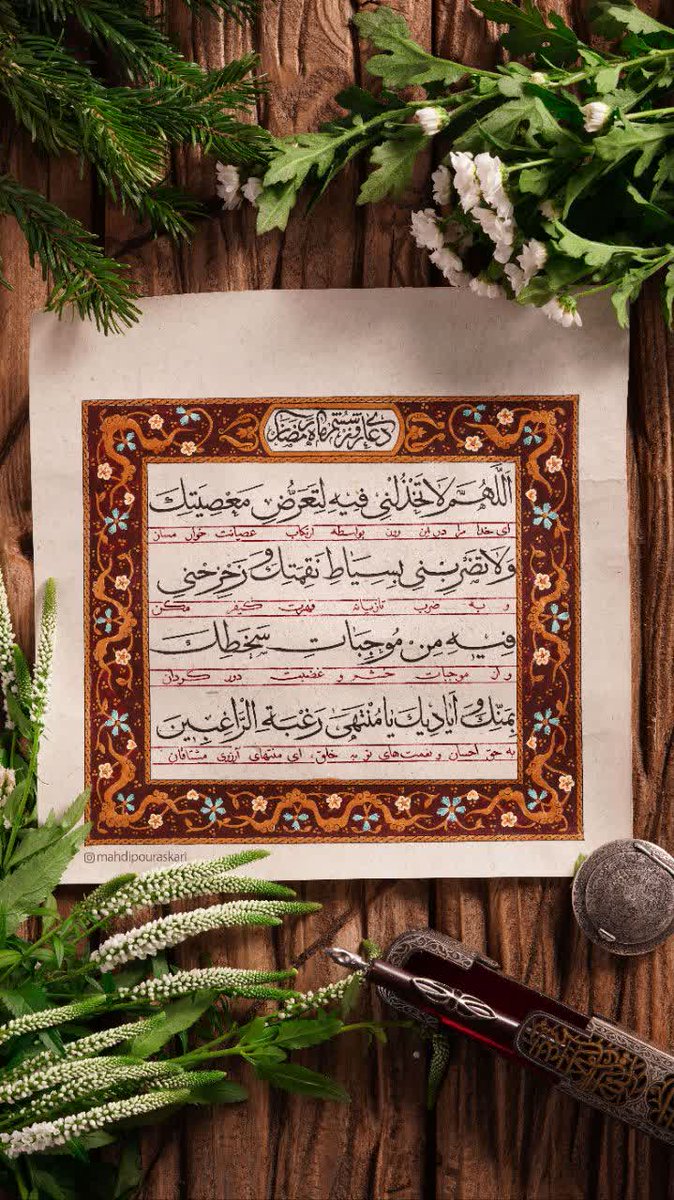 دعای روز ششم ماه رمضان
اللَّهُمَّ لَا تَخْذُلْنِي فِيهِ لِتَعَرُّضِ مَعْصِيَتِكَ
ای خدا مرا در این روز بواسطه ارتکاب عصیانت خوار مساز
وَلَا تَضْرِبْنِي بِسِيَاطِ نَقِمَتِكَ وَ زَحْزِحْنِي
و به ضرب تازیانه قهرت کیفر مکن
فِيهِ مِنْ مُوجِبَاتِ سَخَطِكَ
و از موجبات خشم و غضبت دور گردان
بِمَنِّكَ وَ أَيَادِيكَ يَا مُنْتَهَى رَغْبَةِ الرَّاغِبِينَ
به حق احسان و نعمت‌های تو به خلق، ای منتهای آرزوی مشتاقان
mahdipouraskari